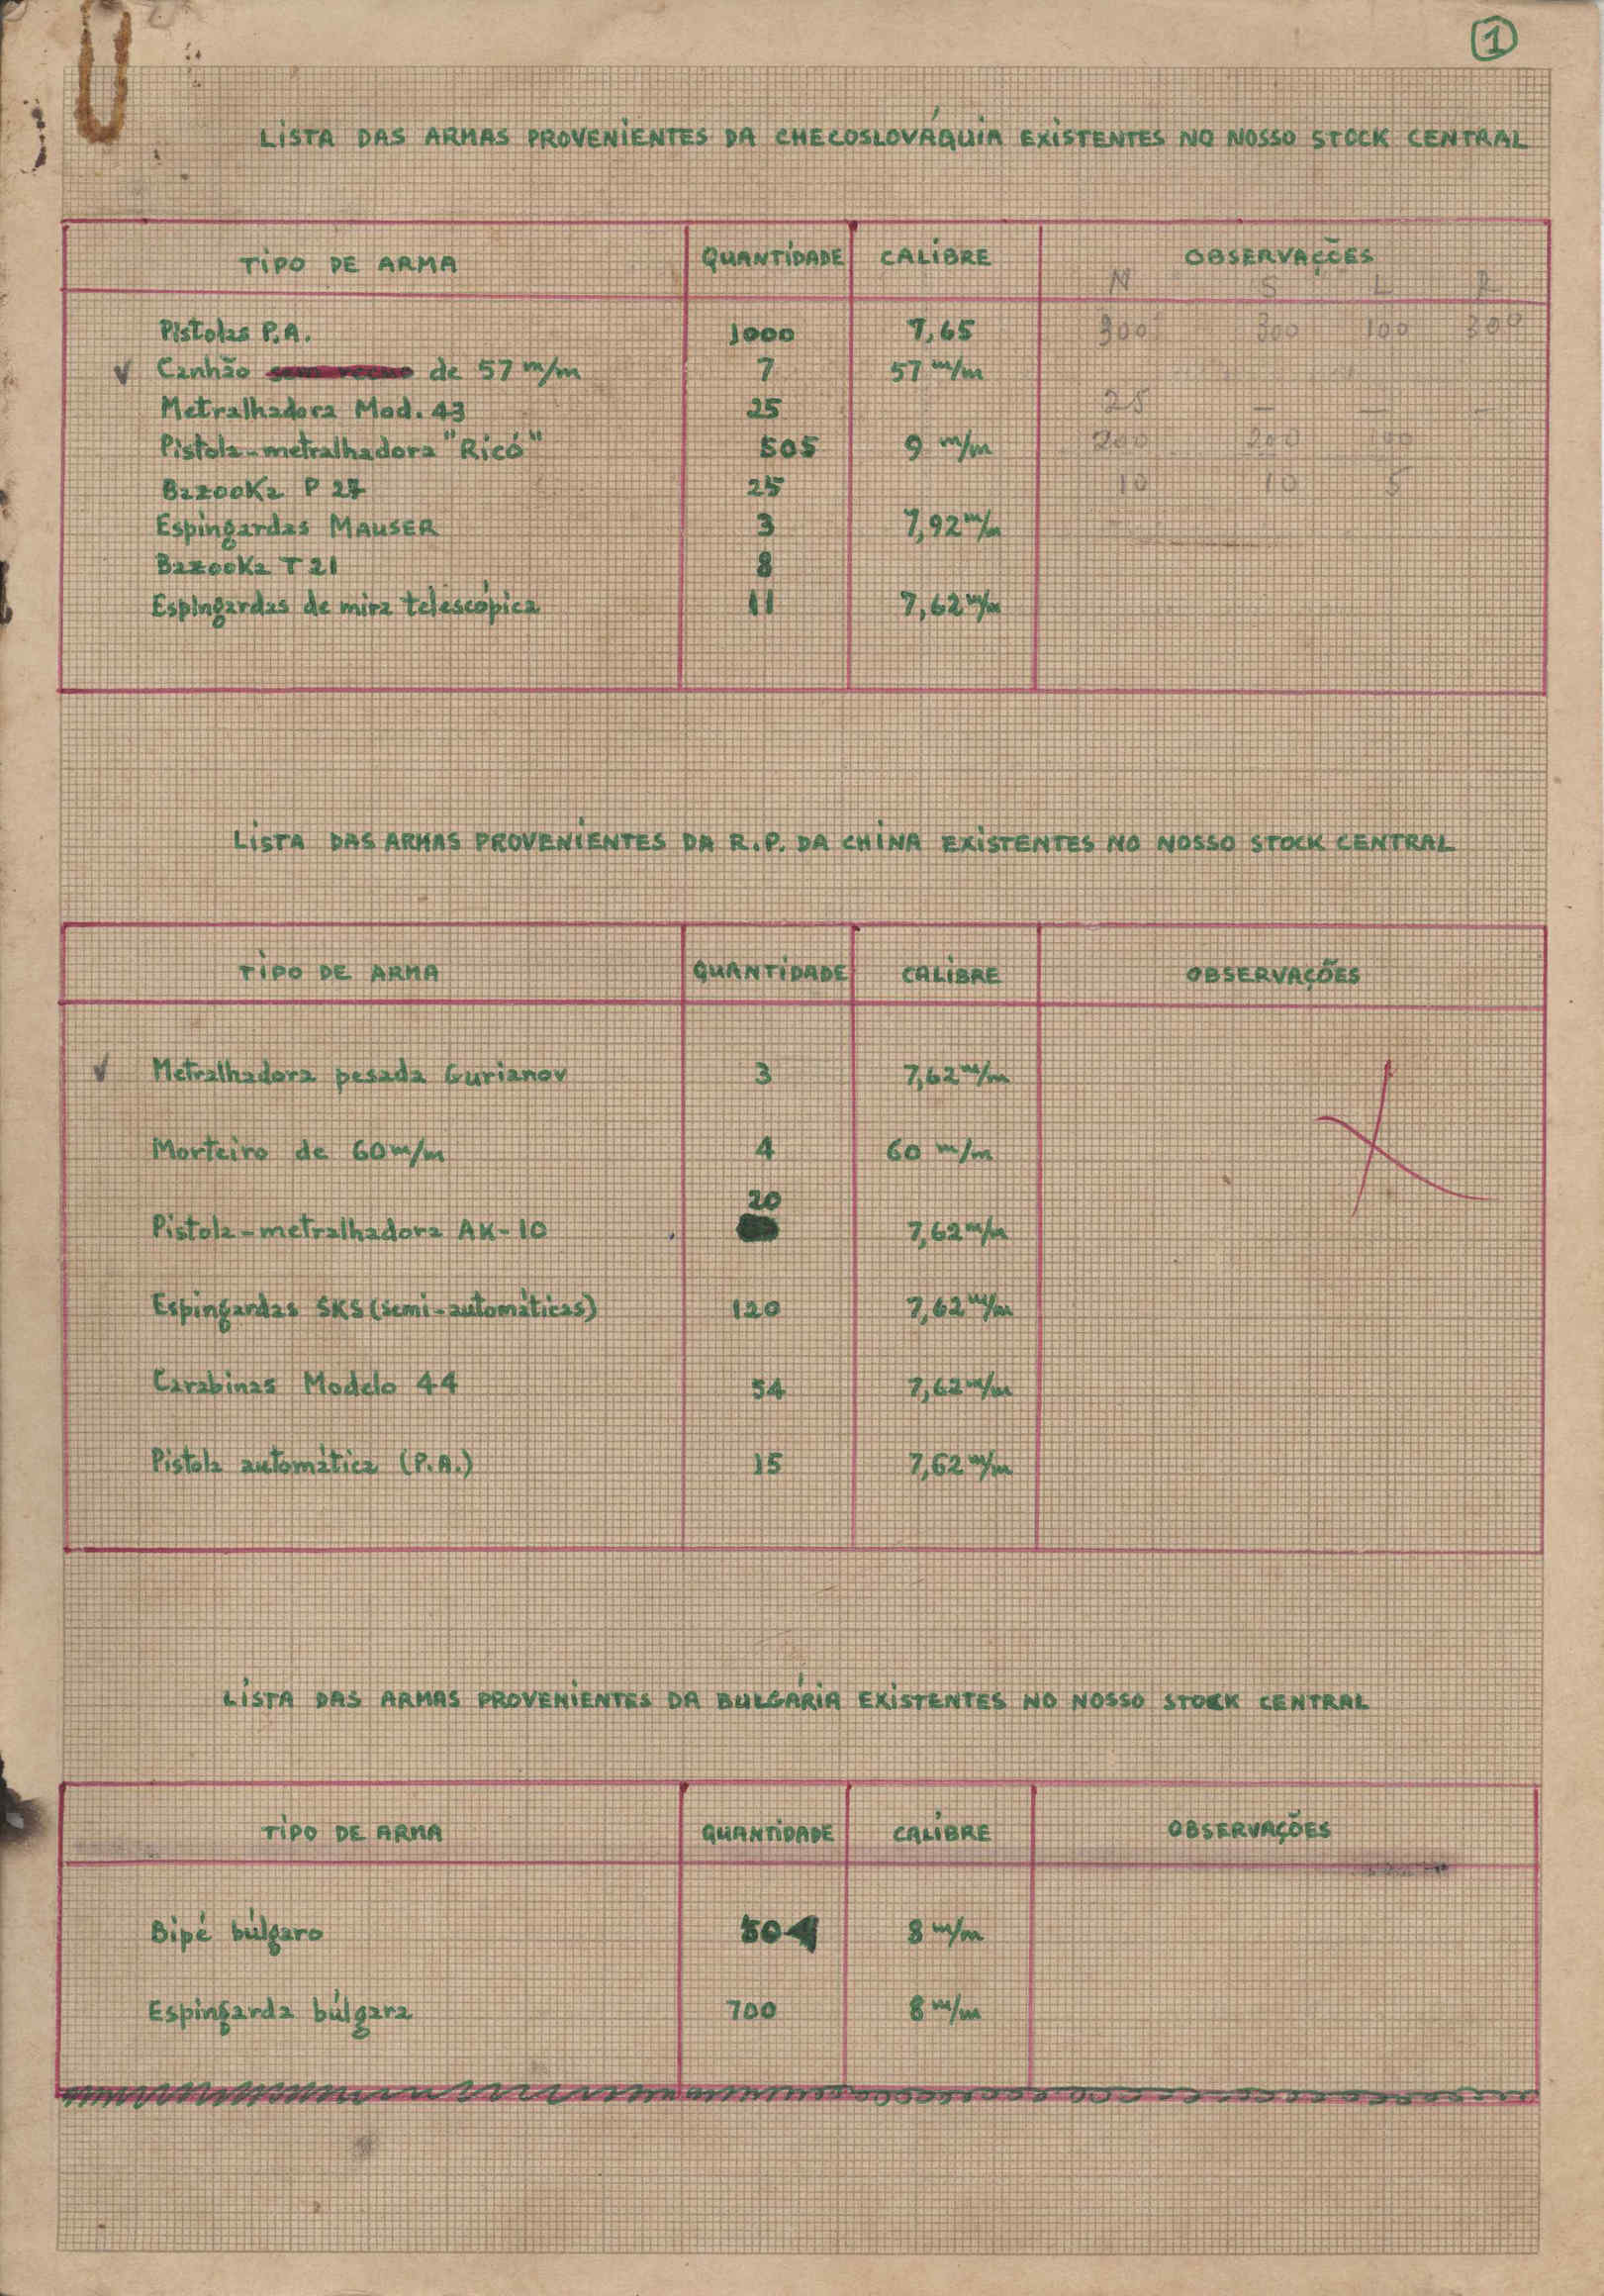 1
LISTA DAS ARMAS PROVENIENTES DA CHECOSLOVÁQUIA EXISTENTES NO NOSSO STOCK CENTRAL
TIPO DE ARMA QUANTIDADE CALIBRE OBSERVAÇÕES
N S L R
Pistolas P.A. 1000 7,65 300 300 100 300
Canhão de 57 m/m 7 57 m/m
Metralhadora Mod. 43 25 25 – – –
Pistola-metralhadora "Ricó" 505 9 m/m 200 200 100
Bazooka P 27 25 10 10 5
Espingardas MAUSER 3 7,92 m/m
Bazooka T 21 8
Espingardas de mira telescópica 11 7,62 m/m
LISTA DAS ARMAS PROVENIENTES DA R.P. DA CHINA EXISTENTES NO NOSSO STOCK CENTRAL
TIPO DE ARMA QUANTIDADE CALIBRE OBSERVAÇÕES
Metralhadora pesada Gurianov 3 7,62 m/m
Morteiro de 60 m/m 4 60 m/m
Pistola-metralhadora AK-10 20 7,62 m/m
Espingardas SKS (semi-automáticas) 120 7,62 m/m
Carabinas Modelo 44 54 7,62 m/m
Pistola automática (P.A.) 15 7,62 m/m
LISTA DAS ARMAS PROVENIENTES DA BULGÁRIA EXISTENTES NO NOSSO STOCK CENTRAL
TIPO DE ARMA QUANTIDADE CALIBRE OBSERVAÇÕES
Bipé búlgaro 50 8 m/m
Espingarda búlgara 700 8 m/m